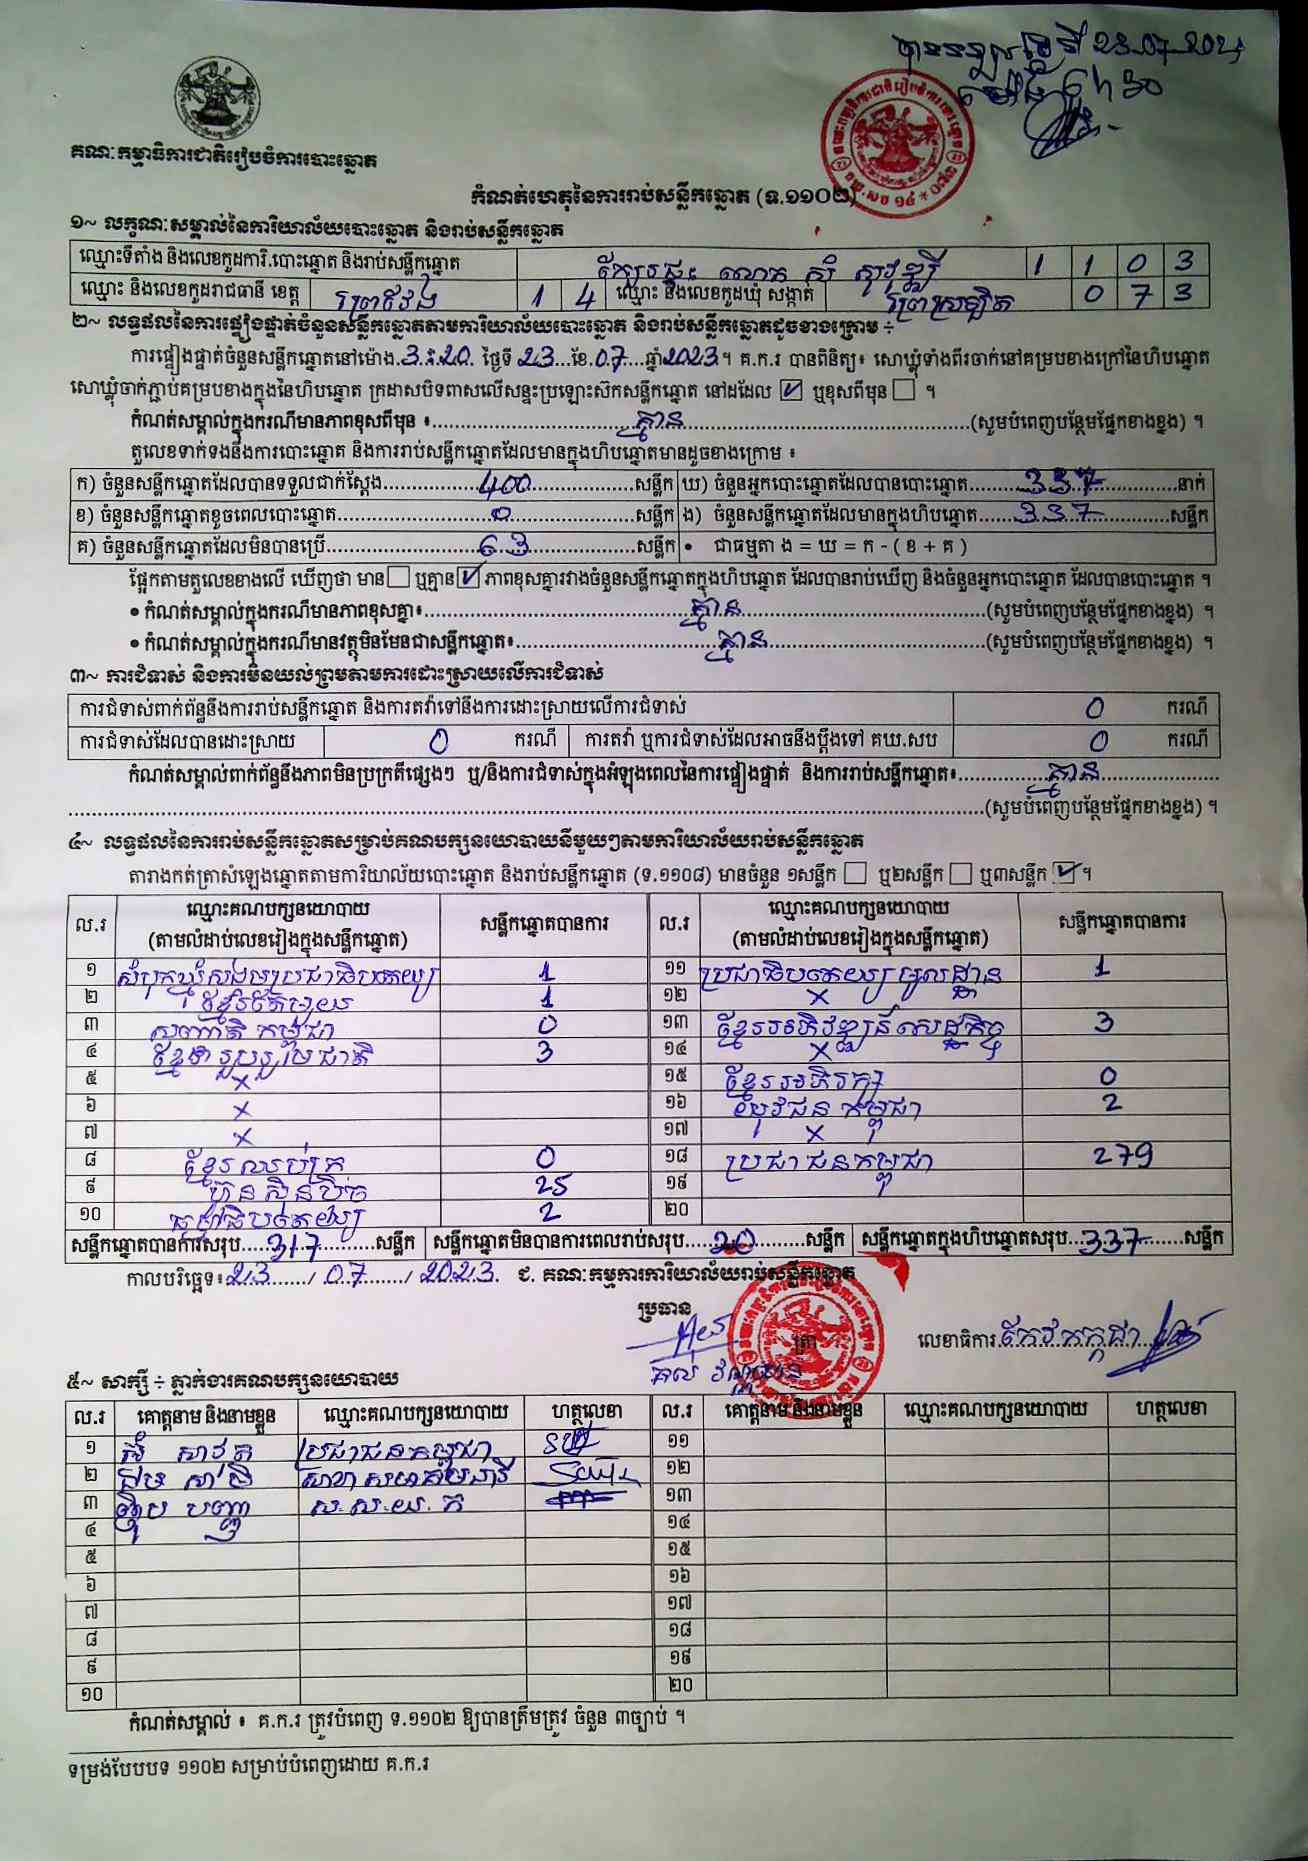 បានទទួលថ្ងៃទី 23.07.2023
ម៉ោង
គណៈកម្មាធិការជាតិរៀបចំការបោះឆ្នោត
កំណត់ហេតុនៃការរាប់សន្លឹកឆ្នោត (ទ.១១០២)
១~ លក្ខណៈសម្គាល់នៃការិយាល័យបោះឆ្នោត និងរាប់សន្លឹកឆ្នោត
ឈ្មោះទីតាំង និងលេខកូដការិ.បោះឆ្នោត និងរាប់សន្លឹកឆ្នោត ក្បែរផ្ទះ លោក សំ សុវុទ្ធី 1 1 0 3
ឈ្មោះ និងលេខកូដរាជធានី ខេត្ត ព្រៃវែង 1 4 ឈ្មោះ និងលេខកូដឃុំ សង្កាត់ ព្រៃស្រឡិត 0 7 3
២~ លទ្ធផលនៃការផ្ទៀងផ្ទាត់ចំនួនសន្លឹកឆ្នោតតាមការិយាល័យបោះឆ្នោត និងរាប់សន្លឹកឆ្នោតដូចខាងក្រោម ÷
ការផ្ទៀងផ្ទាត់ចំនួនសន្លឹកឆ្នោតនៅម៉ោង 3:20 ថ្ងៃទី 23 ខែ 07 ឆ្នាំ 2023 ។ គ.ក.រ បានពិនិត្យ៖ សោឃ្លុំទាំងពីរចាក់នៅគម្របខាងក្រៅនៃហិបឆ្នោត
សោឃ្លុំចាក់ភ្ជាប់គម្របខាងក្នុងនៃហិបឆ្នោត ក្រដាសបិទពាសលើសន្ទះប្រឡោះស៊កសន្លឹកឆ្នោត នៅដដែល ☑ ឬខុសពីមុន ☐ ។
កំណត់សម្គាល់ក្នុងករណីមានភាពខុសពីមុន ៖ គ្មាន (សូមបំពេញបន្ថែមផ្នែកខាងខ្នង) ។
តួលេខទាក់ទងនឹងការបោះឆ្នោត និងការរាប់សន្លឹកឆ្នោតដែលមានក្នុងហិបឆ្នោតមានដូចខាងក្រោម ៖
ក) ចំនួនសន្លឹកឆ្នោតដែលបានទទួលជាក់ស្តែង 400 សន្លឹក ឃ) ចំនួនអ្នកបោះឆ្នោតដែលបានបោះឆ្នោត 337 នាក់
ខ) ចំនួនសន្លឹកឆ្នោតខូចពេលបោះឆ្នោត 0 សន្លឹក ង) ចំនួនសន្លឹកឆ្នោតដែលមានក្នុងហិបឆ្នោត 337 សន្លឹក
គ) ចំនួនសន្លឹកឆ្នោតដែលមិនបានប្រើ 63 សន្លឹក • ជាធម្មតា ង = ឃ = ក - ( ខ + គ )
ផ្អែកតាមតួលេខខាងលើ ឃើញថា មាន ☐ ឬគ្មាន ☑ ភាពខុសគ្នារវាងចំនួនសន្លឹកឆ្នោតក្នុងហិបឆ្នោត ដែលបានរាប់ឃើញ និងចំនួនអ្នកបោះឆ្នោត ដែលបានបោះឆ្នោត ។
• កំណត់សម្គាល់ក្នុងករណីមានភាពខុសគ្នា៖ គ្មាន (សូមបំពេញបន្ថែមផ្នែកខាងខ្នង) ។
• កំណត់សម្គាល់ក្នុងករណីមានវត្ថុមិនមែនជាសន្លឹកឆ្នោត៖ គ្មាន (សូមបំពេញបន្ថែមផ្នែកខាងខ្នង) ។
៣~ ការជំទាស់ និងការមិនយល់ព្រមតាមការដោះស្រាយលើការជំទាស់
ការជំទាស់ពាក់ព័ន្ធនឹងការរាប់សន្លឹកឆ្នោត និងការតវ៉ាទៅនឹងការដោះស្រាយលើការជំទាស់ 0 ករណី
ការជំទាស់ដែលបានដោះស្រាយ 0 ករណី ការតវ៉ា ឬការជំទាស់ដែលអាចនឹងប្តឹងទៅ គឃ.សប 0 ករណី
កំណត់សម្គាល់ពាក់ព័ន្ធនឹងភាពមិនប្រក្រតីផ្សេងៗ ឬ/និងការជំទាស់ក្នុងអំឡុងពេលនៃការផ្ទៀងផ្ទាត់ និងការរាប់សន្លឹកឆ្នោត៖ គ្មាន
(សូមបំពេញបន្ថែមផ្នែកខាងខ្នង) ។
៤~ លទ្ធផលនៃការរាប់សន្លឹកឆ្នោតសម្រាប់គណបក្សនយោបាយនីមួយៗតាមការិយាល័យរាប់សន្លឹកឆ្នោត
តារាងកត់ត្រាសំឡេងឆ្នោតតាមការិយាល័យបោះឆ្នោត និងរាប់សន្លឹកឆ្នោត (ទ.១១០៨) មានចំនួន ១សន្លឹក ☐ ឬ២សន្លឹក ☐ ឬ៣សន្លឹក ☑ ។
ល.រ ឈ្មោះគណបក្សនយោបាយ (តាមលំដាប់លេខរៀងក្នុងសន្លឹកឆ្នោត) សន្លឹកឆ្នោតបានការ ល.រ ឈ្មោះគណបក្សនយោបាយ (តាមលំដាប់លេខរៀងក្នុងសន្លឹកឆ្នោត) សន្លឹកឆ្នោតបានការ
១ សំបុកឃ្មុំសង្គមប្រជាធិបតេយ្យ 1 ១១ ប្រជាធិបតេយ្យមូលដ្ឋាន 1
២ ខ្មែរតែមួយ 1 ១២ ×
៣ សញ្ជាតិកម្ពុជា 0 ១៣ ខ្មែរអភិវឌ្ឍន៍សេដ្ឋកិច្ច 3
៤ ខ្មែររួបរួមជាតិ 3 ១៤ ×
៥ × ១៥ ខ្មែរអភិរក្ស 0
៦ × ១៦ យុវជនកម្ពុជា 2
៧ × ១៧ ×
៨ ខ្មែរឈប់ក្រ 0 ១៨ ប្រជាជនកម្ពុជា 279
៩ ហ៊្វុនស៊ិនប៉ិច 25 ១៩
១០ ធម្មាធិបតេយ្យ 2 ២០
សន្លឹកឆ្នោតបានការសរុប 317 សន្លឹក សន្លឹកឆ្នោតមិនបានការពេលរាប់សរុប 20 សន្លឹក សន្លឹកឆ្នោតក្នុងហិបឆ្នោតសរុប 337 សន្លឹក
កាលបរិច្ឆេទ៖ 23 / 07 / 2023. ជ. គណៈកម្មការការិយាល័យរាប់សន្លឹកឆ្នោត
ប្រធាន
ត្រា លេខាធិការ កែវកក្កដា
៥~ សាក្សី ÷ ភ្នាក់ងារគណបក្សនយោបាយ
ល.រ គោត្តនាម និងនាមខ្លួន ឈ្មោះគណបក្សនយោបាយ ហត្ថលេខា ល.រ គោត្តនាម និងនាមខ្លួន ឈ្មោះគណបក្សនយោបាយ ហត្ថលេខា
១ ប្រជាជនកម្ពុជា ១១
២ ១២
៣ ស.ស.យ.ក ១៣
៤ ១៤
៥ ១៥
៦ ១៦
៧ ១៧
៨ ១៨
៩ ១៩
១០ ២០
កំណត់សម្គាល់ ៖ គ.ក.រ ត្រូវបំពេញ ទ.១១០២ ឱ្យបានត្រឹមត្រូវ ចំនួន ៣ច្បាប់ ។
ទម្រង់បែបបទ ១១០២ សម្រាប់បំពេញដោយ គ.ក.រ